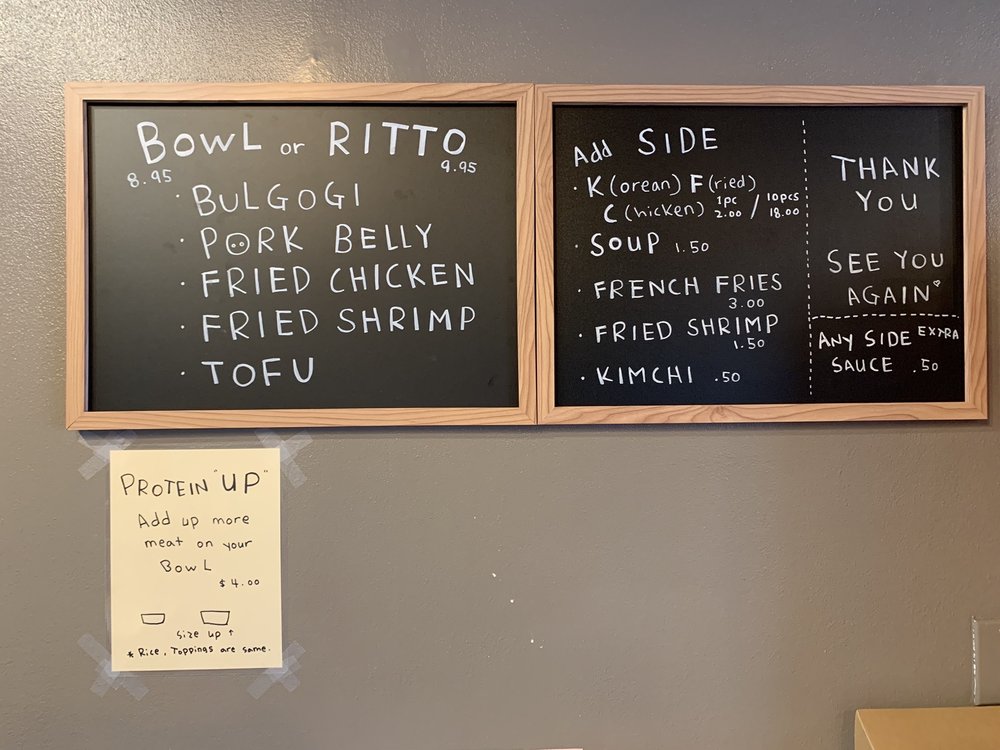 BOWL or RITTO
8.95 9.95
· BULGOGI
· PORK BELLY
· FRIED CHICKEN
· FRIED SHRIMP
· TOFU
Add SIDE
· K(orean) F(ried)
C(hicken) 1pc 2.00 / 10pcs 18.00
· SOUP 1.50
· FRENCH FRIES
3.00
· FRIED SHRIMP
1.50
· KIMCHI .50
THANK
YOU
SEE YOU
AGAIN♡
ANY SIDE EXTRA
SAUCE .50
PROTEIN "UP"
Add up more
meat on your
BOWL
$4.00
Size up ↑
* Rice, Toppings are same.